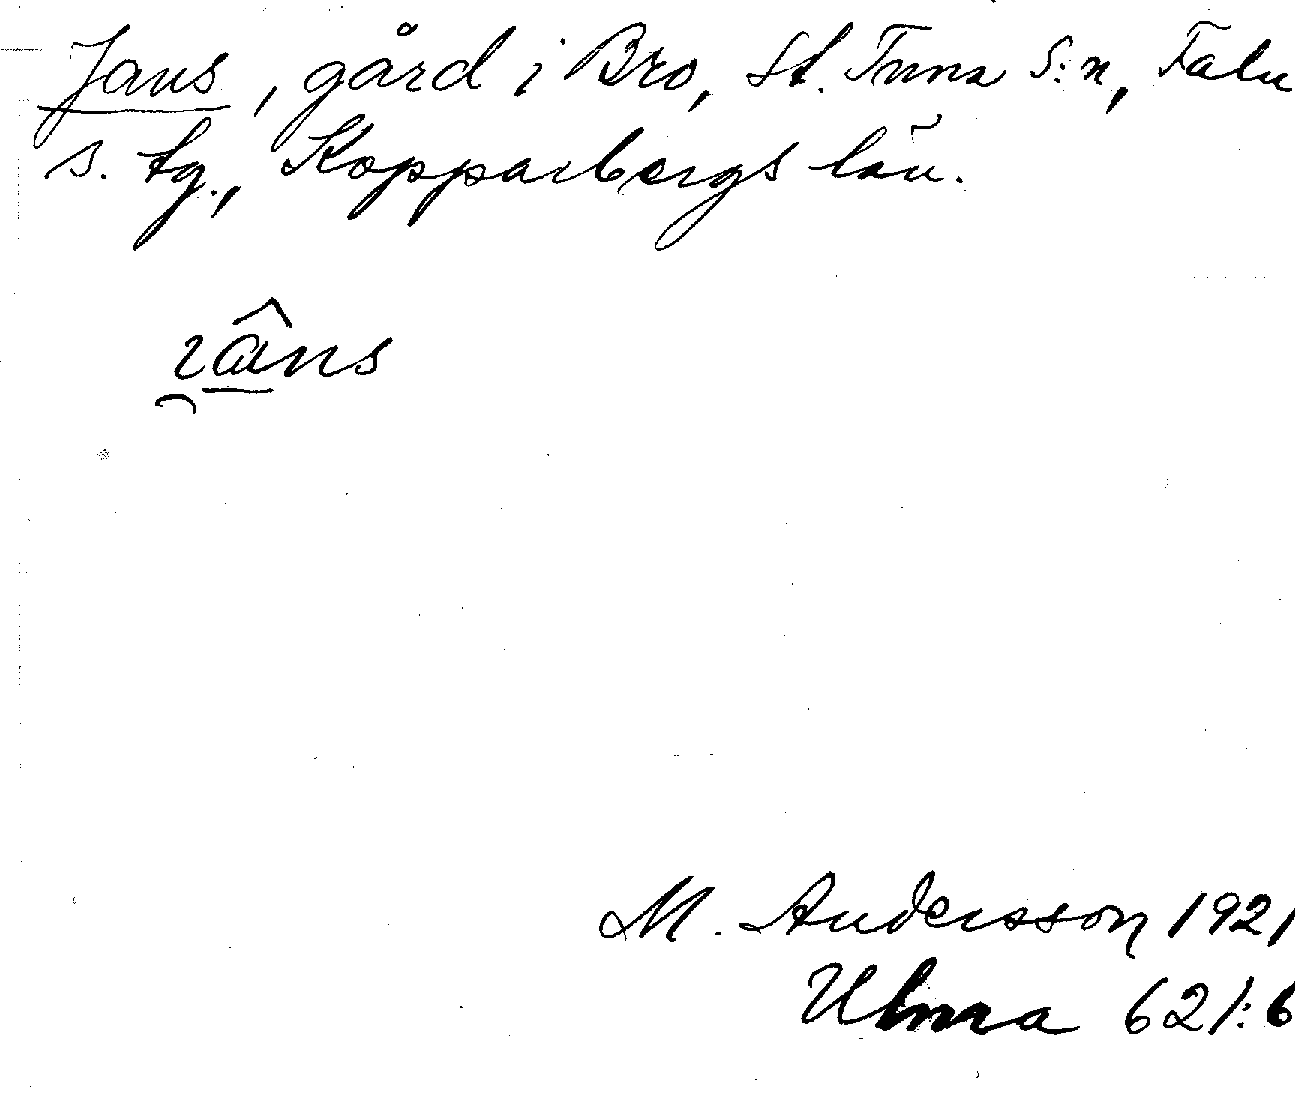 Jans, gård i Bro, St. Tuna S:n, Falu
s. tg., Kopparbergs län.
ı̯âns
M. Andersson 1921
Ulma 621:6